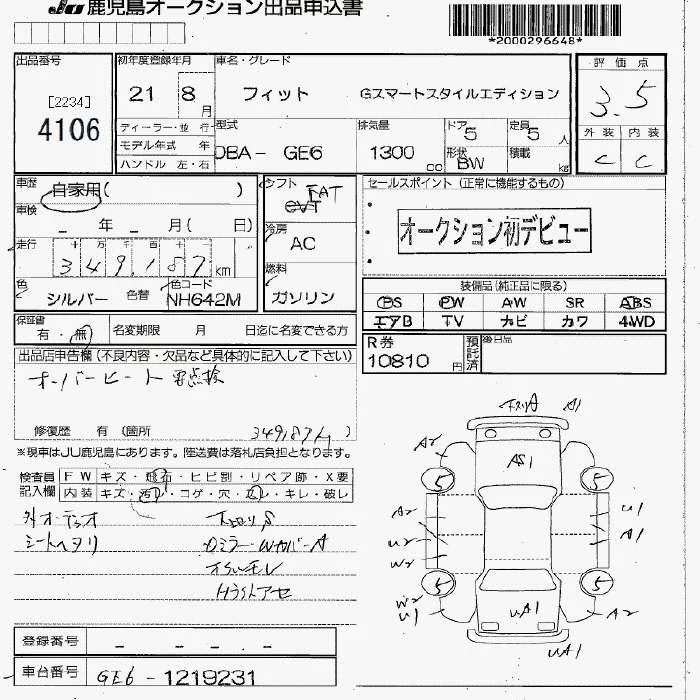 JU 鹿児島オークション出品申込書
*2000296648*
出品番号
[2234]
4106
初年度登録年月
21 8 月
車名・グレード
フィット Gスマートスタイルエディション
評価点
3.5
外装 内装
C C
ディーラー・並 行
モデル年式 年
ハンドル 左・右
型式
DBA- GE6
排気量
1300 cc
ドア 5
定員 5 人
形状 BW
積載 kg
車歴
自家用( )
車検
_ 年 _ 月( 日)
走行
十 万 千 百 十 一
349,187 km
色
シルバー 色替
色コード
NH642M
シフト
FAT
CVT
冷房
AC
燃料
ガソリン
セールスポイント (正常に機能するもの)
オークション初デビュー
装備品(純正品に限る)
PS PW AW SR ABS
エアB TV カビ カワ 4WD
保証書
有・無
名変期限 月 日迄に名変できる方
R券
10810 円
預託済
後日品
出品店申告欄(不良内容・欠品など具体的に記入して下さい)
オーバーヒート 要点検
修復歴 有(箇所 349187km )
※現車はJU鹿児島にあります。陸送費は落札店負担となります。
検査員
記入欄
FW キズ・飛石・ヒビ割・リペア跡・X要
内装 キズ・ ・コゲ・穴・ ・キレ・破レ
外オーディオ
シートヘタリ
A1
A2
AS1
5
5
A2
U2
W2
U1
A1
5
5
W2
U1
UA1
A2
UA1
登録番号
_ _ . _
車台番号
GE6-1219231